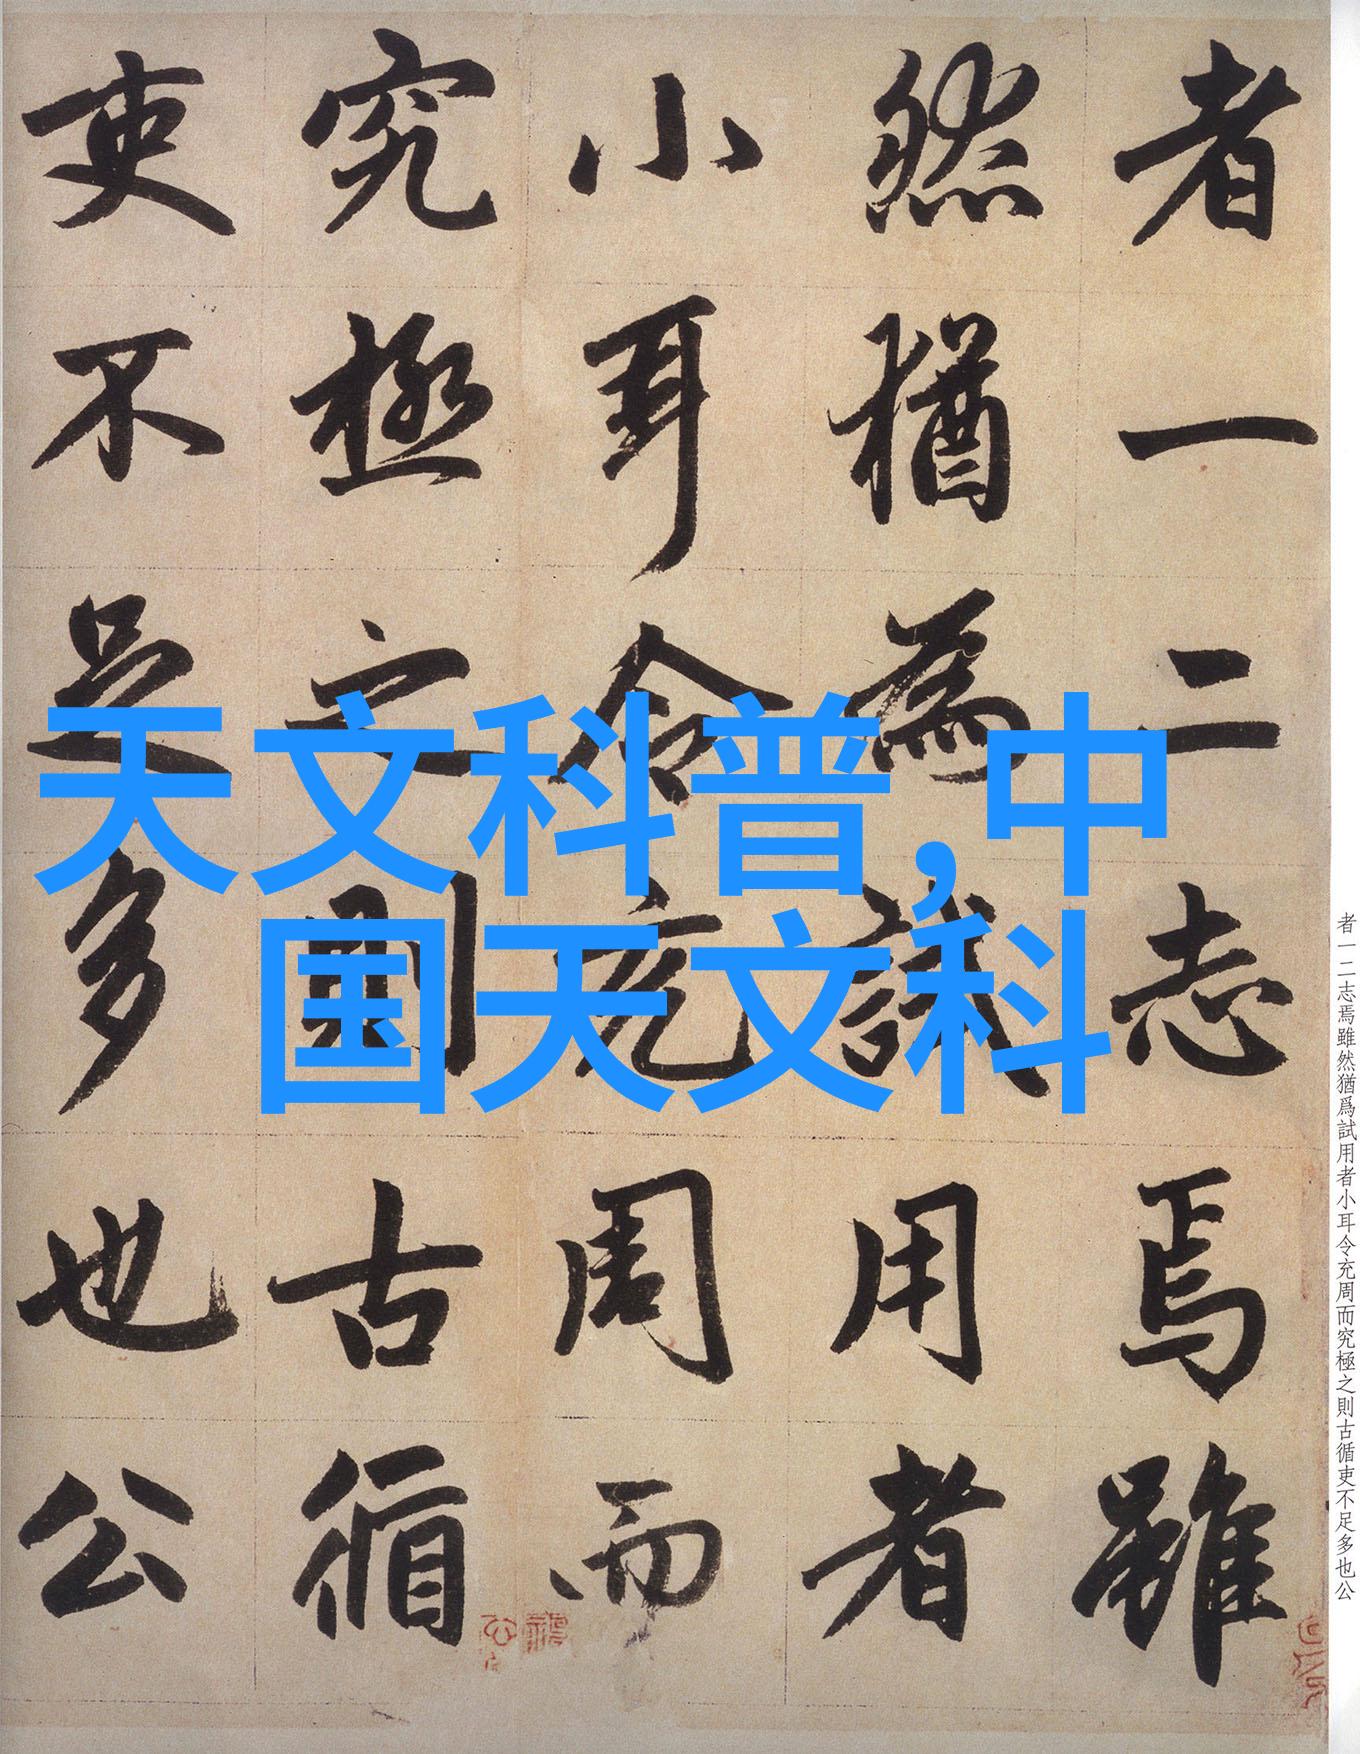 天文科普,中
国天文科
者一二志焉雖
然猶為試用者
小耳令充周而
究極之則古循
吏不足多也公
者一二志焉雖然猶爲試用者小耳令充周而究極之則古循吏不足多也公